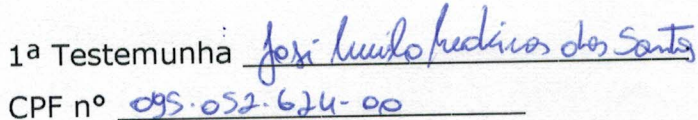 1ª Testemunha José Murilo Medeiros dos Santos
CPF nº 095.052.624-00